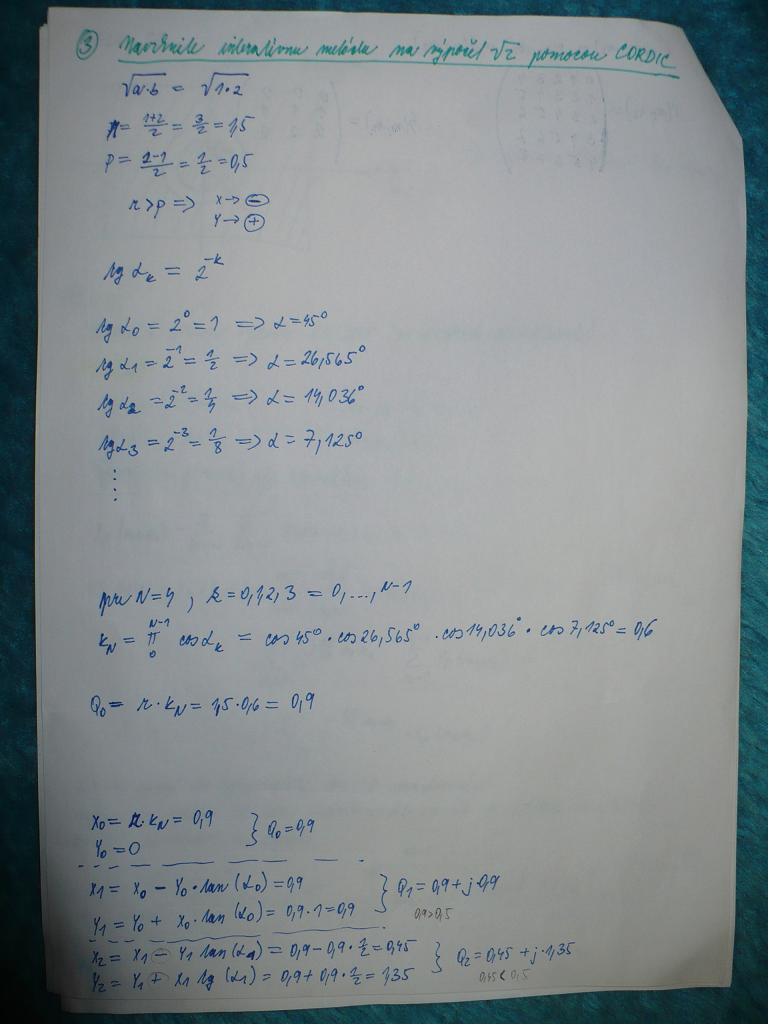 ③ Navrhnite iteratívnu metódu na výpočet √2 pomocou CORDIC
√a·b = √1·2
r = 1+2/2 = 3/2 = 1,5
p = 2-1/2 = 1/2 = 0,5
r > p => x → ⊖
y → ⊕
tg αk = 2^-k
tg α0 = 2^0 = 1 => α = 45°
tg α1 = 2^-1 = 1/2 => α = 26,565°
tg α2 = 2^-2 = 1/4 => α = 14,036°
tg α3 = 2^-3 = 1/8 => α = 7,125°
⋮
pre N = 4 , k = 0,1,2,3 = 0, ..., N-1
KN = N-1 π 0 cos αk = cos 45° · cos 26,565° · cos 14,036° · cos 7,125° = 0,6
Q0 = r · KN = 1,5 · 0,6 = 0,9
x0 = r · KN = 0,9 } Q0 = 0,9
y0 = 0
x1 = x0 - y0 · tan (α0) = 0,9 } Q1 = 0,9 + j·0,9
y1 = y0 + x0 · tan (α0) = 0,9 · 1 = 0,9 0,9 > 0,5
x2 = x1 - y1 tan (α1) = 0,9 - 0,9 · 1/2 = 0,45 } Q2 = 0,45 + j·1,35
y2 = y1 + x1 tg (α1) = 0,9 + 0,9 · 1/2 = 1,35 0,45 < 0,5